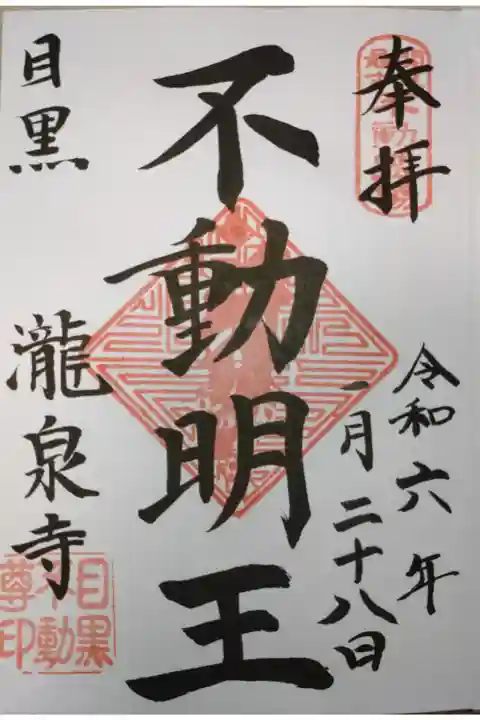 奉拝
令和六年
一月二十八日
不動明王
目黒
瀧泉寺
目黒
不動
尊印